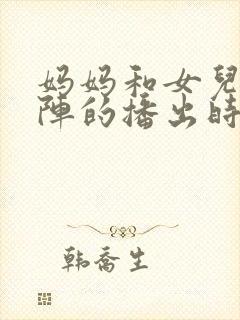 妈妈和女兒
陣的播出時
韩乔生